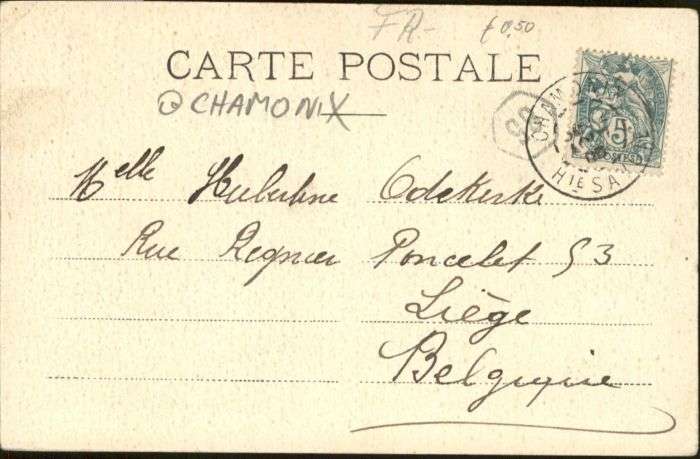 FR- £0,50
CARTE POSTALE
CHAMONIX
CHAMONIX
HTE SA
5
POSTES
Melle Hubertine Odekerke
Rue Regnier Poncelet 53
Liège
Belgique